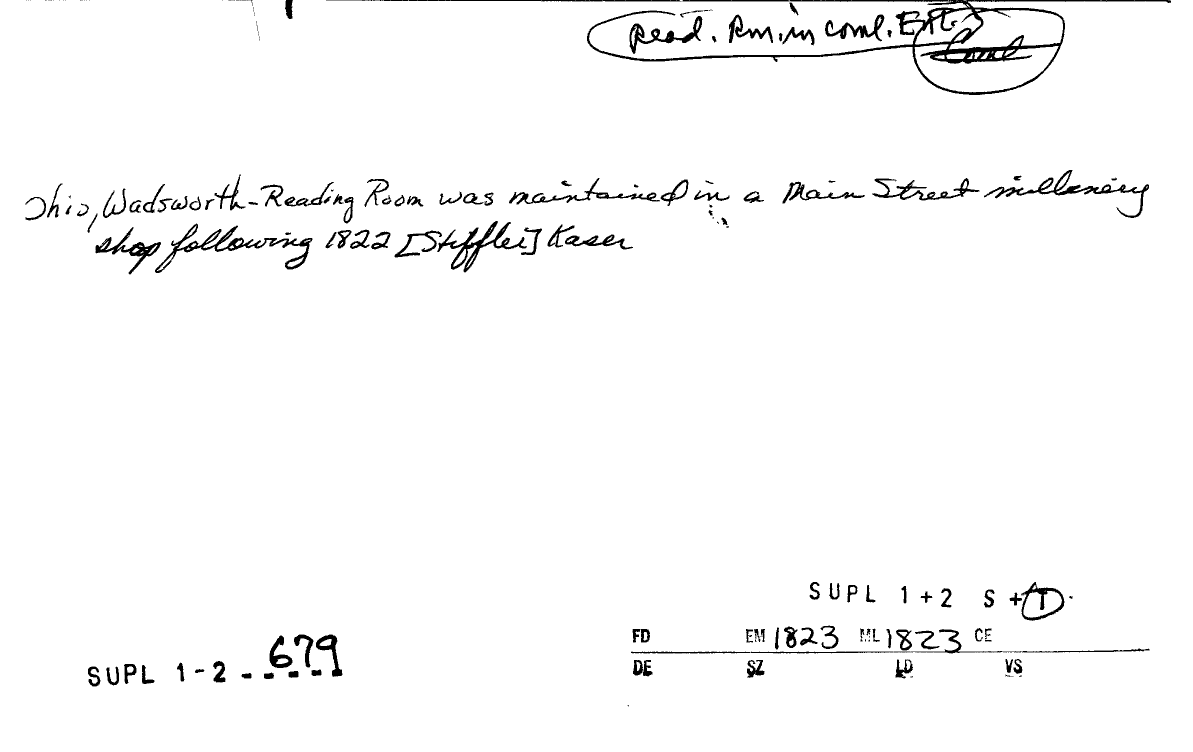 Read. Rm. in coml. Est.
Coml
Ohio, Wadsworth - Reading Room was maintained in a Main Street millenery
shop following 1822 [Stiffler] Kaser
SUPL 1+2 S + T
FD EM 1823 ML 1823 CE
DE SZ LD VS
SUPL 1-2 679